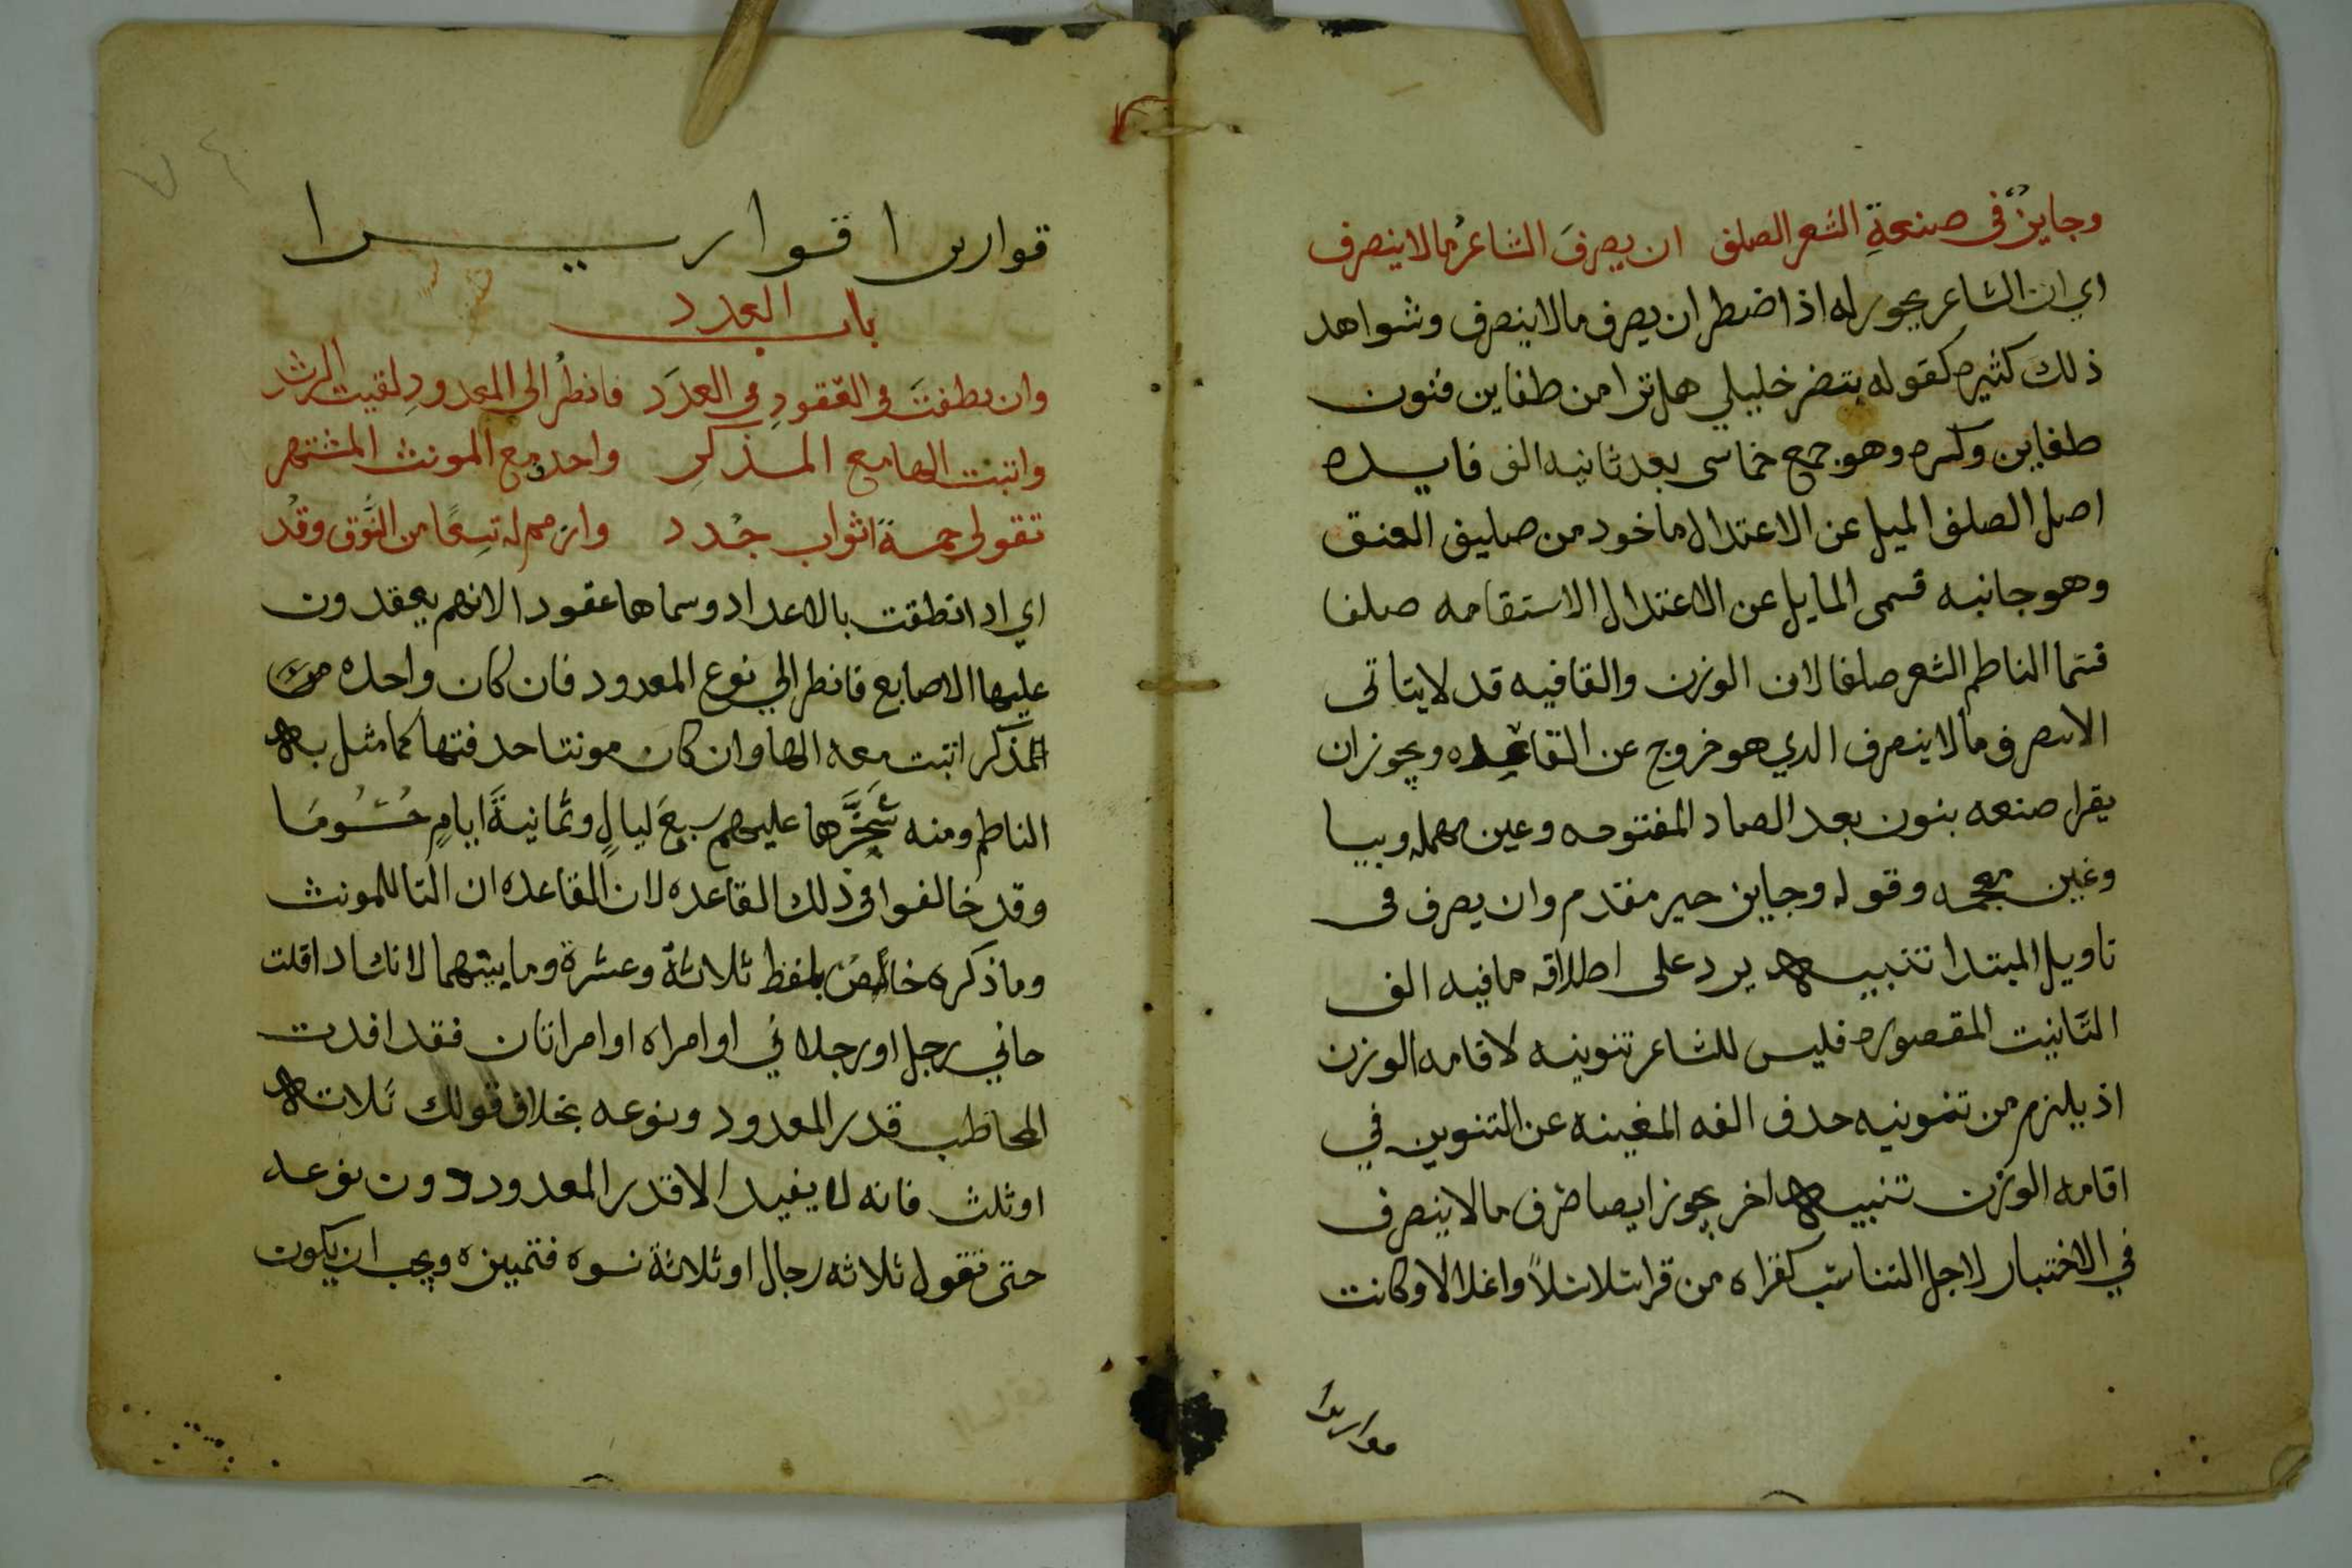 وجايزٌ في صنعةِ الشعر الصلف ان يصرفَ الشاعرُ مالا ينصرف
اي ان الشاعر يجوز له اذا اضطر ان يصرف مالا ينصرف وشواهد
ذلك كثيره كقوله بتضر خليلي هل ترا من طفاين فنون
طفاين وكسره وهو جمع خماسي بعد ثانيه الف فايده
اصل الصلف الميل عن الاعتدال ماخود من صليف العنق
وهو جانبه فسمى المايل عن الاعتدال الاستقامه صلفا
فسما الناظم الشعر صلفا لان الوزن والقافيه قد لايتاتى
الا بصرف مالا ينصرف الدي هو خروج عن القاعده ويجوز ان
يقرا صنعه بنون بعد الصاد المفتوحه وعين مهمله وبيا
وغين معجمه وقوله وجايز خبر مقدم وان يصرف في
تاويل المبتدا تنبيه يرد على اطلاقه مافيه الف
التانيت المقصوره فليس للشاعر تنوينه لاقامه الوزن
اذ يلزم من تنوينه حدف الفه المغينه عن التنوين في
اقامه الوزن تنبيه اخر يجوز ايصا صرف مالا ينصرف
في الاختيار لاجل التناسب كقراه من قرا سلاسلاً واغلالا وكانت
قواريرا
قواريرا قواريرا
باب العدد
وان نطقتَ في العقودِ في العدَد فانظُر الى المعدودِ لقيت الرشد
واتبت الها مع المذكر واحدف مع المونث المشتهر
تقول لي خمسةُ اثواب جُدد وازمم له تسِعًا من النُّوق وقُد
اي ادا نطقت بالاعداد وسماها عقودا لانهم يعقدون
عليها الاصابع فانظر الي نوع المعدود فان كان واحده من
المذكر اتبت معه الها وان كان مونتا حدفتها كما مثل به
الناظم ومنه سَخَّرَها عليهم سبعَ ليالٍ وثمانيةَ ايامٍ حُسُومَا
وقد خالفوا في ذلك القاعده لان القاعده ان التا للمونث
وما ذكره خاص بلفظ ثلاثة وعشرة وما بينهما لانك ادا قلت
جاني رجل او رجلاني او امراه او امراتان فقد افدت
المخاطب قدر المعدود ونوعه بخلاف قولك ثلاته
او ثلث فانه لا يفيد الا قدر المعدود دون نوعه
حتى تقول ثلاثه رجال او ثلاثة نسوه فتميزه ويجب ان يكون